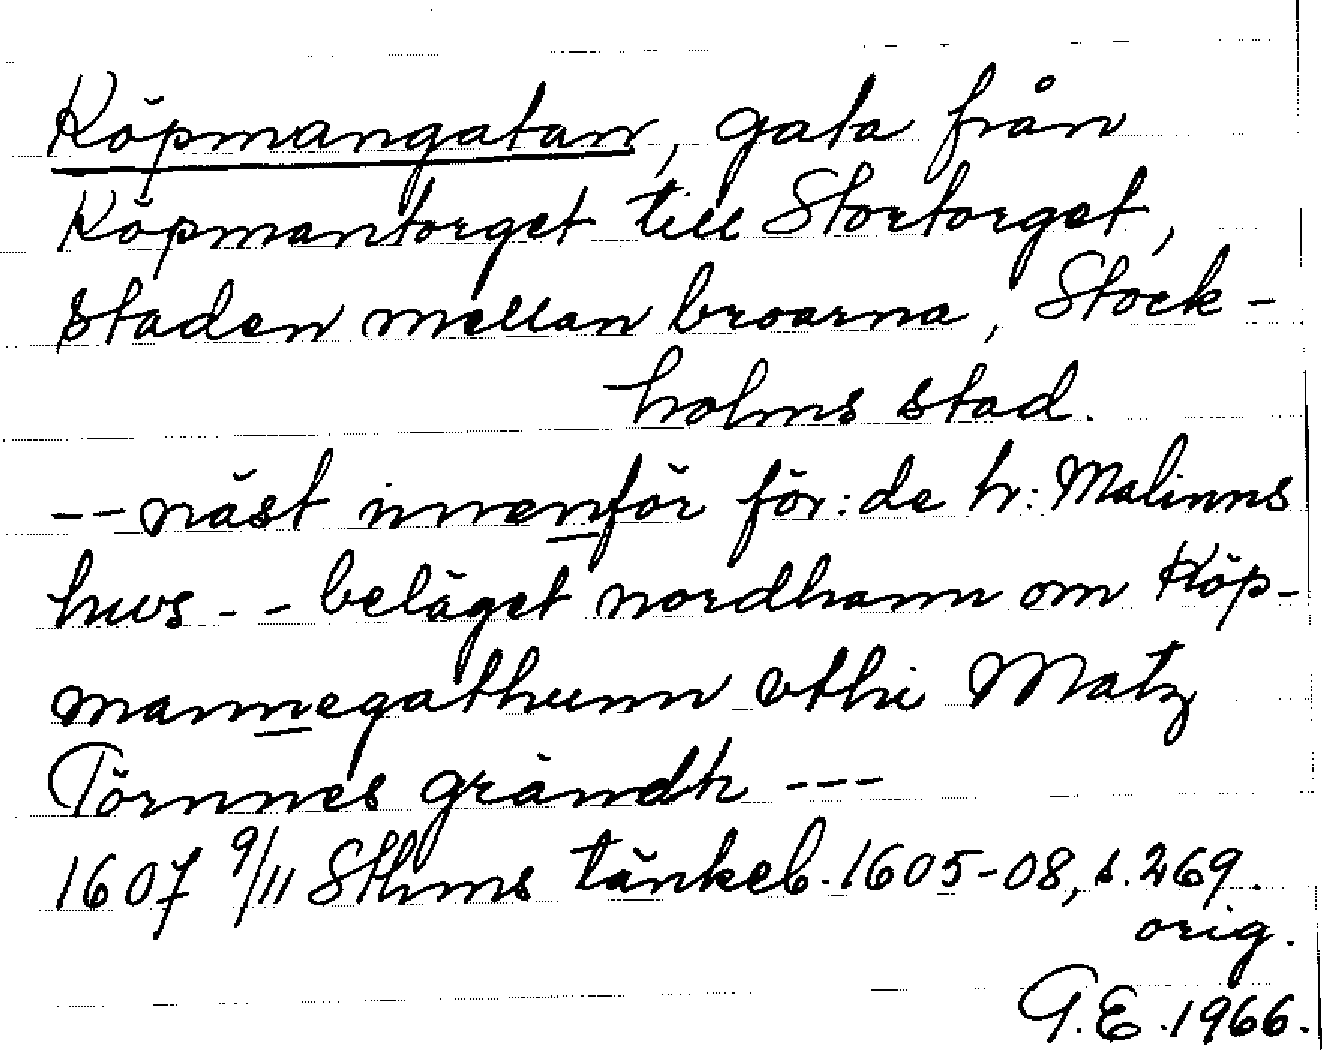 Köpmangatan, gata från
Köpmantorget till Stortorget,
staden mellan broarna, Stock-
holms stad.
-- näst innenför för: de hr: Malinns
hus -- beläget nordhann om Köp-
mannegathunn vthi Matz
Törnnes grändh ---
1607 9/11 Sthms tänkeb. 1605-08, s. 269.
orig.
G.E. 1966.